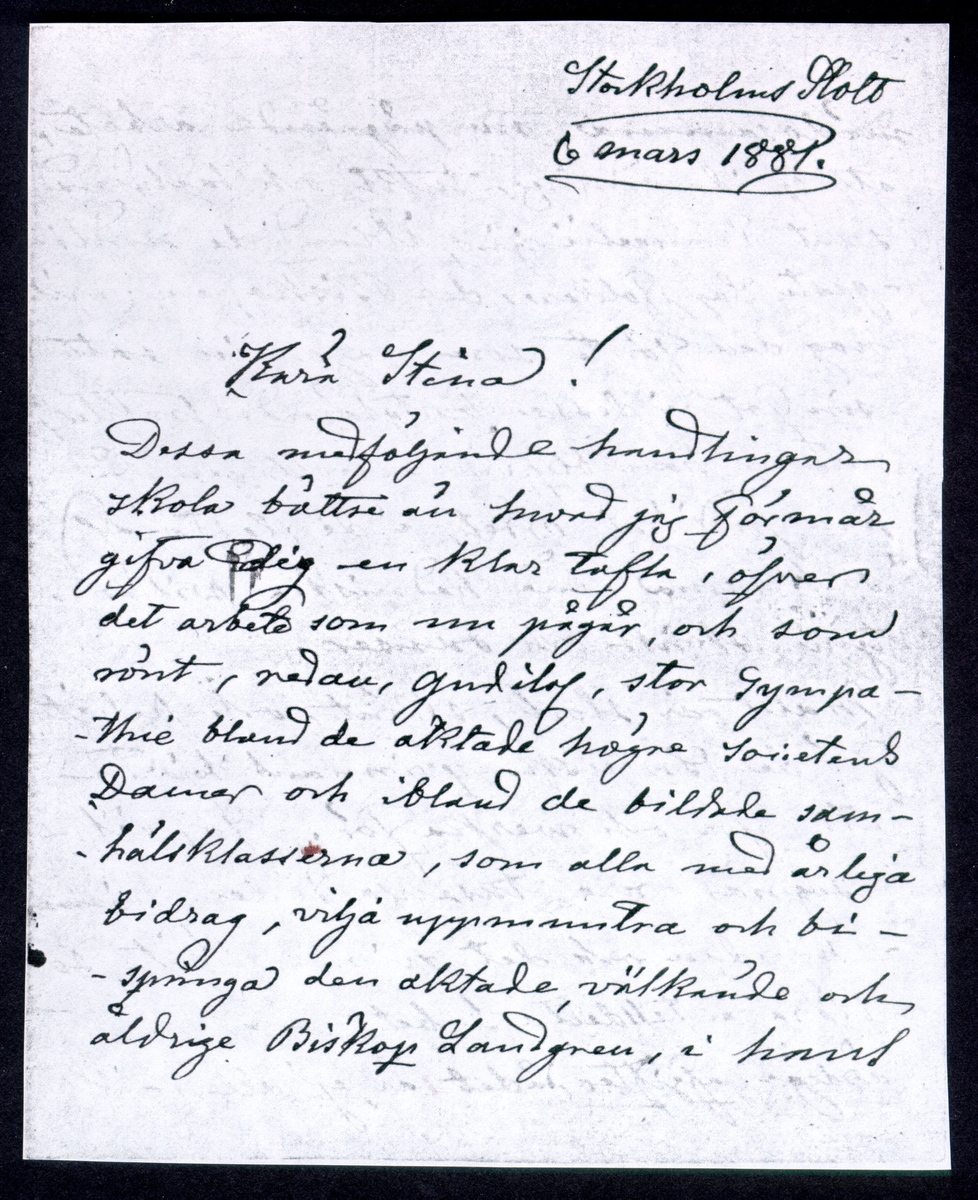 Stockholms Slott
6 mars 1881.
Kära Stina!
Dessa medföljande handlingar
skola bättre än hvad jag förmår
gifva dig en klar tafla, öfver
det arbete som nu pågår, och som
rönt, redan, Gudilof, stor Sympa-
-thie bland de aktade högre societens
Damer och ibland de bildade sam-
-hälsklasserna, som alla med årliga
bidrag, vilja uppmuntra och bi-
-springa den aktade, välkände och
åldrige Biskop Landgren, i hans